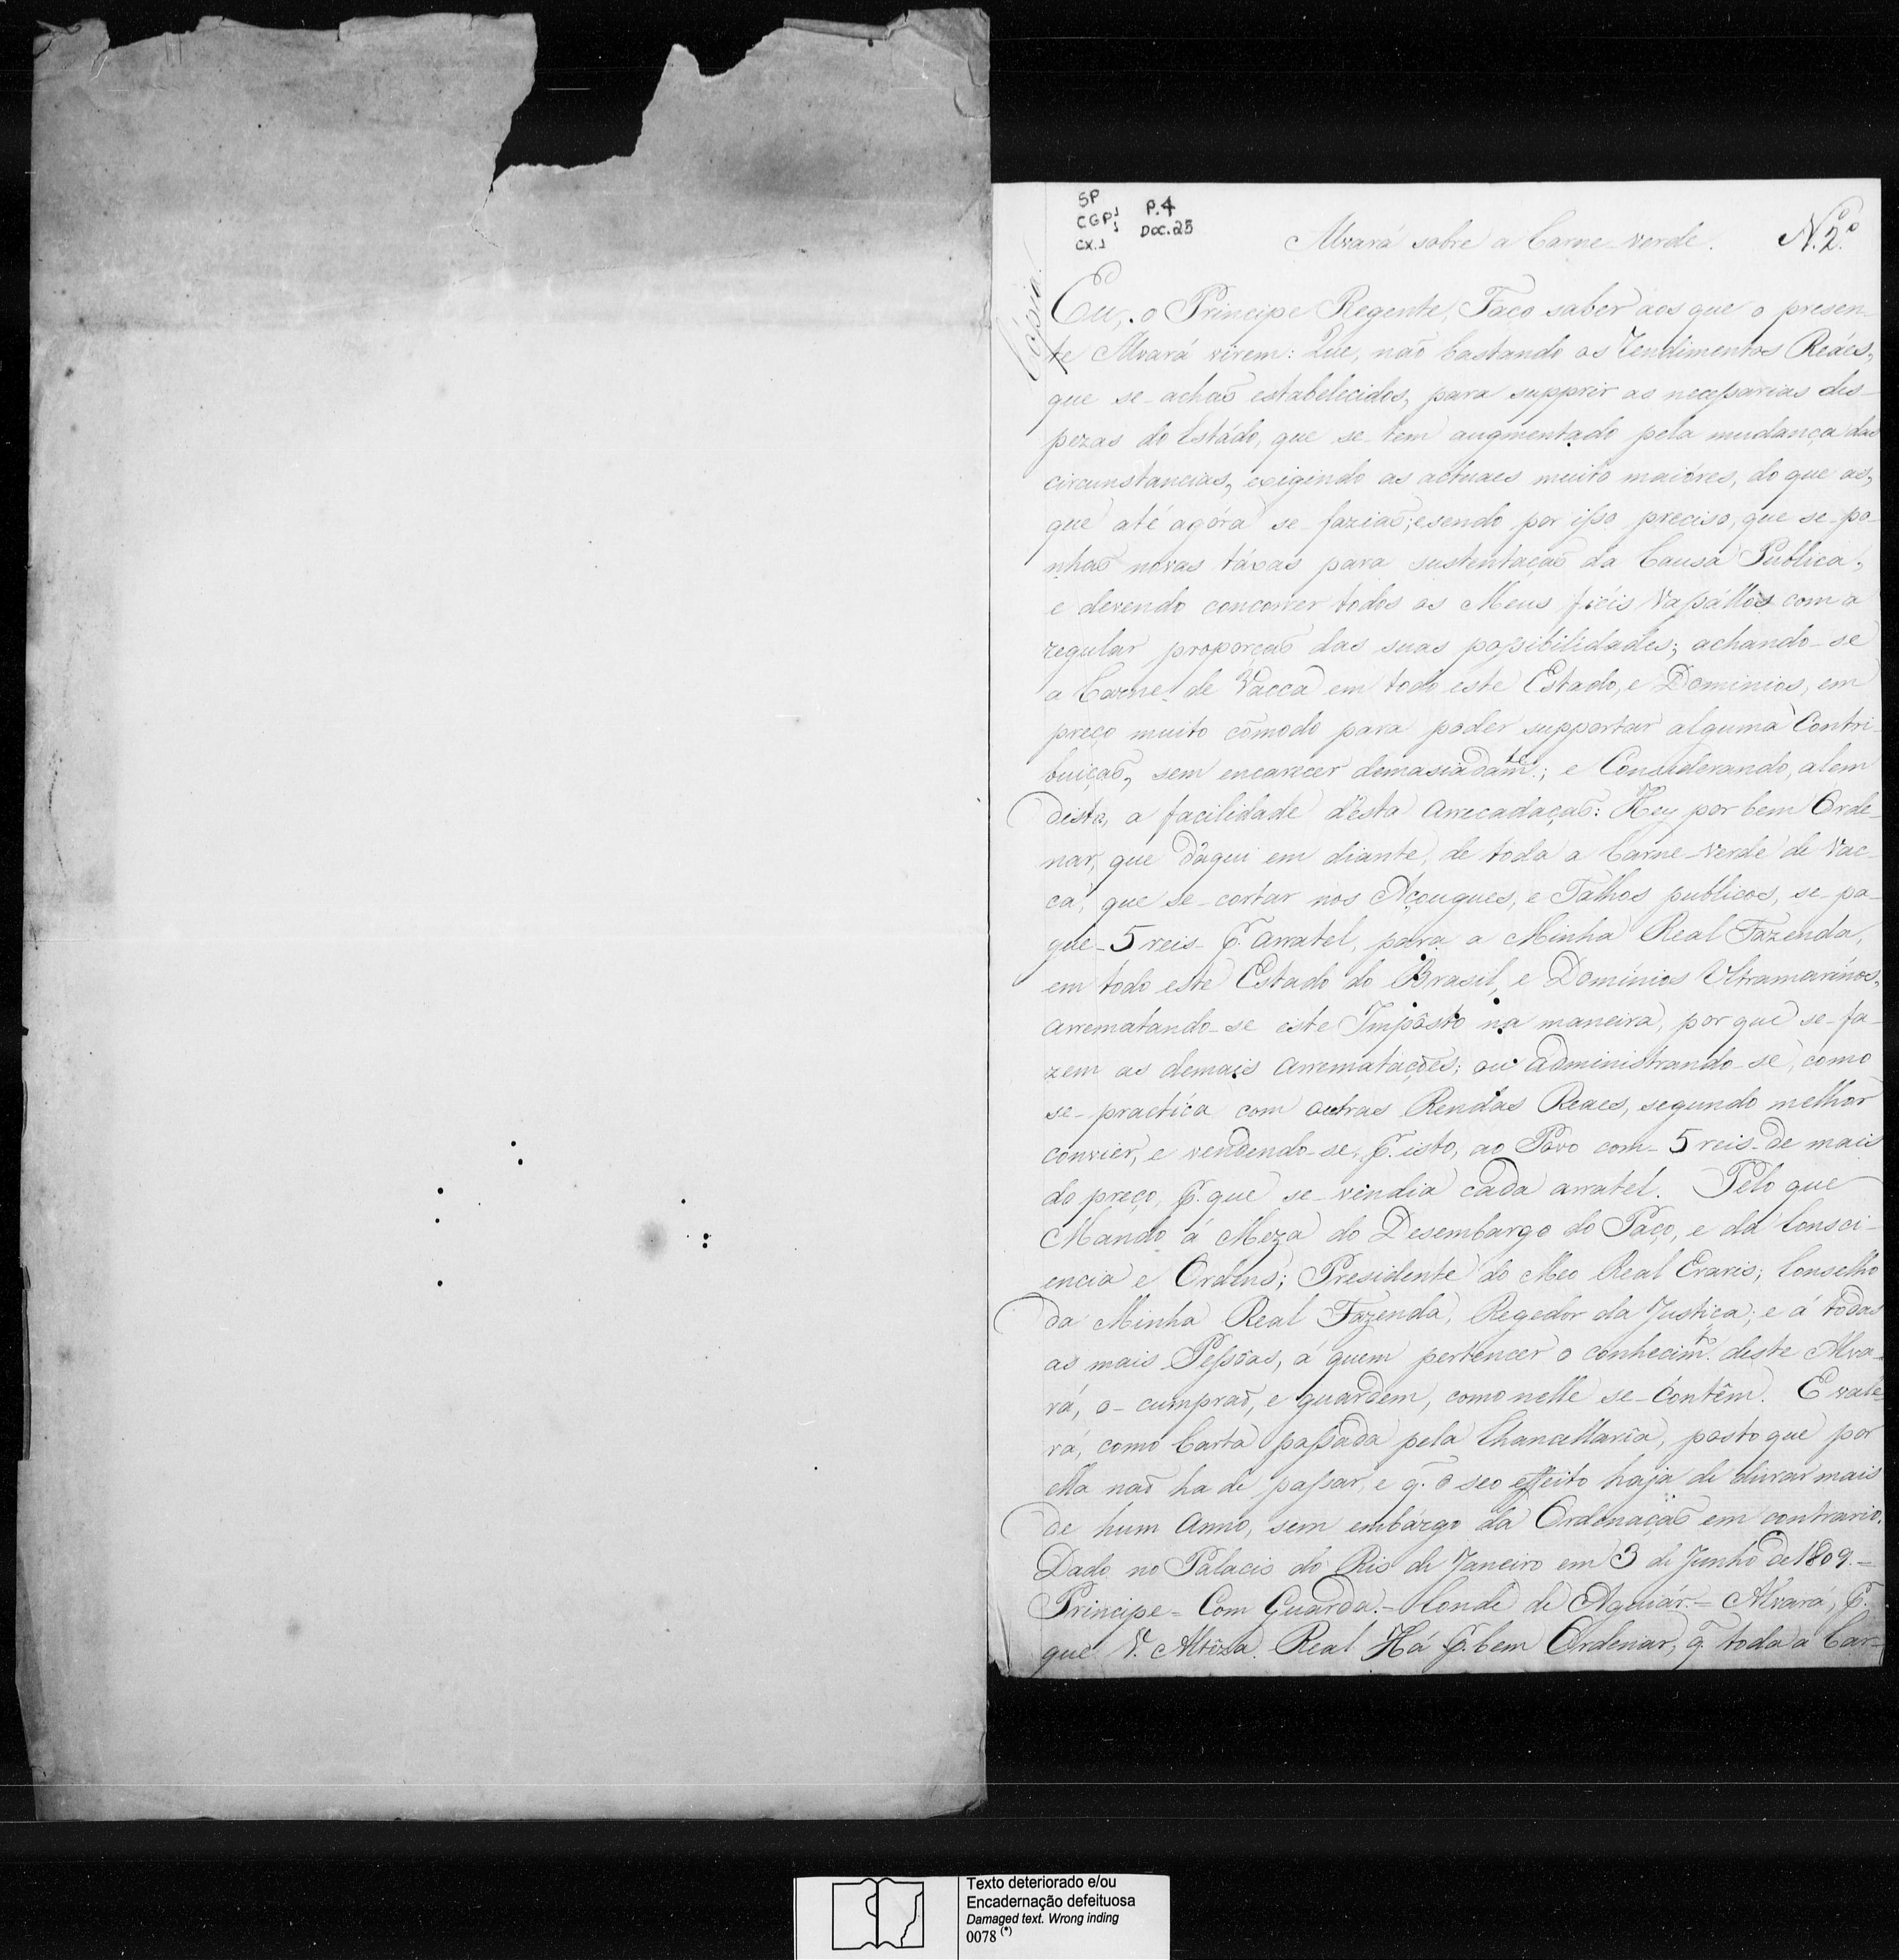 SP P.4
CGP1 Doc.25
CX.1
Alvará sobre a Carne verde. N.2.º
Cópia.
Eu, o Principe Regente, Faço saber aos que o presen-
te Alvará virem: Que, naõ bastando os rendimentos Reáes,
que se-achaõ estabelecidos, para supprir as necessarias des-
pezas do Estádo, que se-tem augmentado pela mudança das
circunstancias, exigindo as actuaes muito maióres, do que as,
que até agóra se-faziaõ; e sendo por isso preciso, que se-po-
nhaõ novas táxas para sustentaçaõ da Causa Publica,
e devendo concorrer tódos os Meus fiéis Vassállos com a
regular proporçaõ das suas possibilidades; achando-se
a Carne de Vacca em todo este Estado, e Dominios, em
preço muito cõmodo para poder supportar alguma Contri-
buiçaõ, sem encarecer demasiadam.te; e Considerando, alem
disto, a facilidade d'ésta arrecadaçaõ: Hey por bem Orde-
nar, que dáqui em diante, de toda a Carne-verde de Vac-
ca, que se-cortar nos Açougues, e Talhos publicos, se-pa-
gue-5 reis-p.r arratel, para a Minha Real Fazenda,
em todo este Estado do Brasil, e Domínios Ultramarínos,
arrematando-se este Impôsto na maneira, por que se-fa-
zem as demais arremataçoẽs; ou administrando-se, como
se-practíca com outras Rendas Reaes, segundo melhor
convier, e vendendo-se, p.r isto, ao Povo com-5 reis-de mais
do preço, p.r que se-vendia cada arratel. Pelo que
Mando á Meza do Desembargo do Paço, e da Consci-
encia e Ordens; Presidente do Meo Real Erario; Conselho
da Minha Real Fazenda, Regedor da Justiça; e á todas
as mais Pessôas, á quem pertencer o conhecim.to deste Alva-
rá, o-cumpraõ, e guardem, como nelle se-contêm. E vale-
rá, como Carta passada pela Chancellarîa, posto que por
ella naõ ha de passar, e q. o seo effeito haja de durar mais
de hum anno, sem embárgo da Ordenaçaõ em contrario.
Dado no Palacio do Rio de Janeiro em 3 de Junho de 1809.=
Principe = Com Guarda.= Conde de Aguiár.= Alvará, p.r
que V. Altêza Real Há p.r bem Ordenar, q. toda a Car-
Texto deteriorado e/ou
Encadernação defeituosa
Damaged text. Wrong inding
0078 (*)